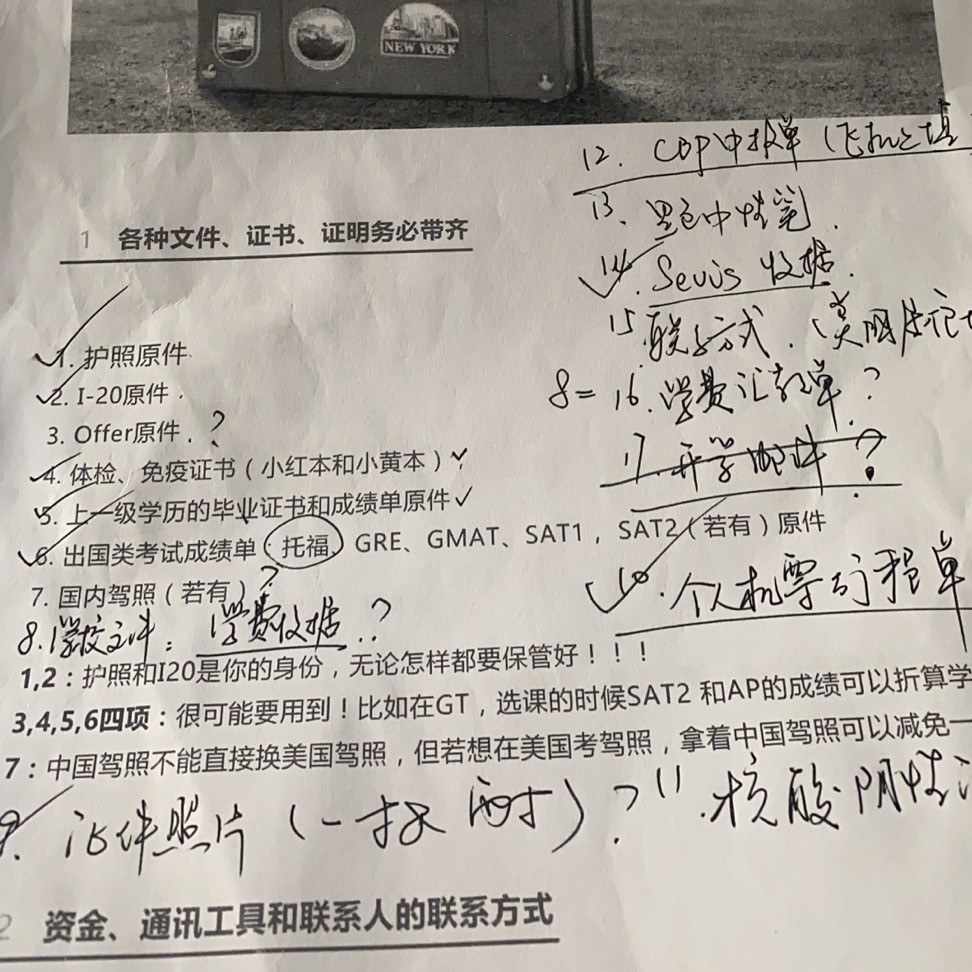 NEW YORK
12. CDP申报单（飞机上填
13. 黑色中性笔.
1 各种文件、证书、证明务必带齐
14. Sevis 收据.
15. 联系方式.
1. 护照原件
8= 16. 学费汇款单?
2. I-20原件.
3. Offer原件. ?
17. 开学邮件?
4. 体检、免疫证书（小红本和小黄本）
5. 上一级学历的毕业证书和成绩单原件
6. 出国类考试成绩单（托福，GRE、GMAT、SAT1，SAT2（若有）原件
7. 国内驾照（若有）?
10. 个人机票与行程单
8. 学校文件：学费收据.?
1,2：护照和I20是你的身份，无论怎样都要保管好！！！
3,4,5,6四项：很可能要用到！比如在GT，选课的时候SAT2 和AP的成绩可以折算学
7：中国驾照不能直接换美国驾照，但若想在美国考驾照，拿着中国驾照可以减免一
9. 证件照片（一按 耐）? 11. 核酸阴性
2 资金、通讯工具和联系人的联系方式